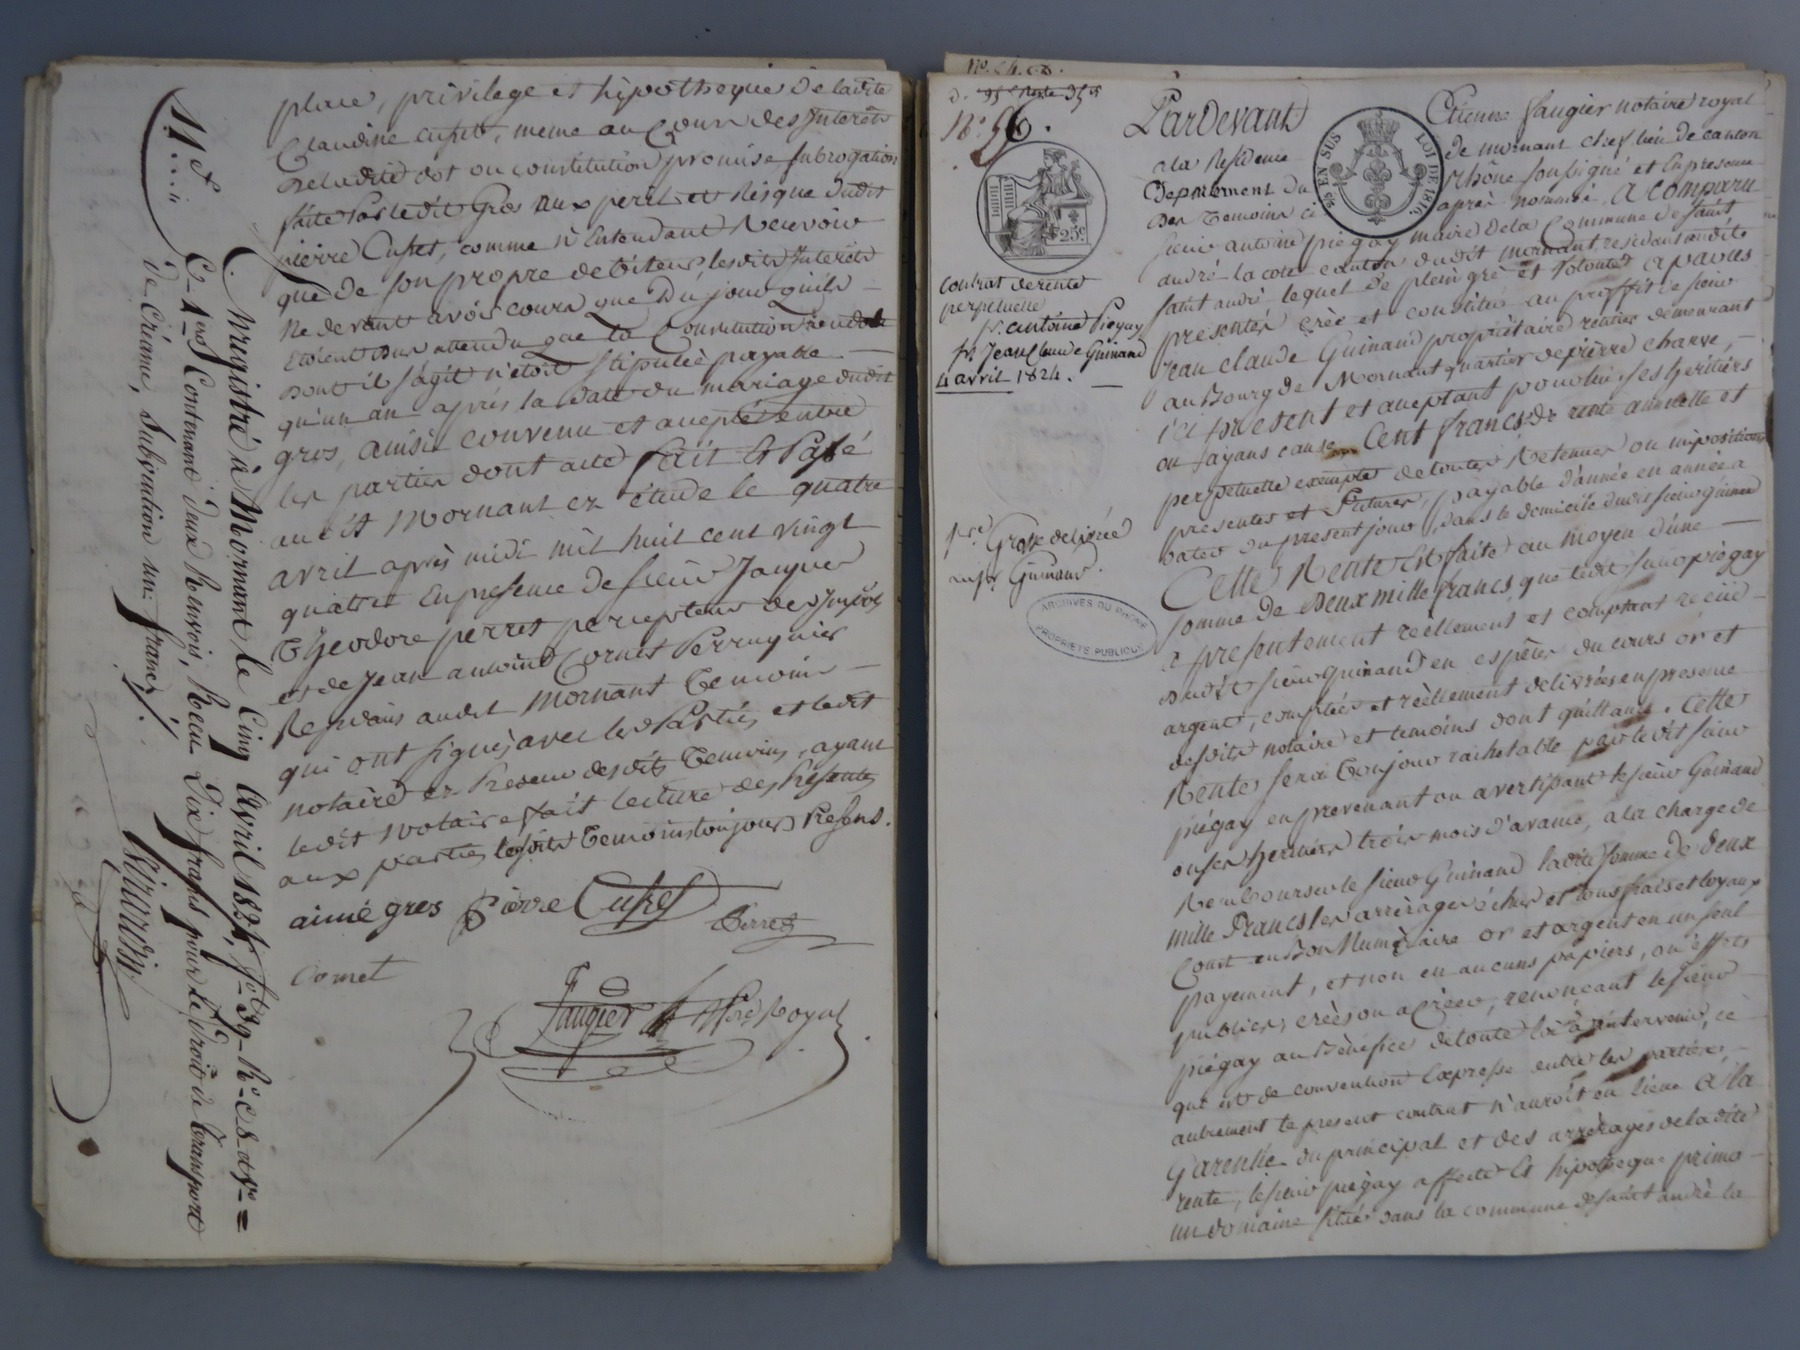 place, privilege et hipotheque de ladite
Claudine Cuset, meme au Cours des Interêts
de ladite dot ou constitution promise subrogation
faite par ledit Gros aux peril et Risque dudit
pierre Cuset, comme n'Entendant Recevoir
que de son propre debiteur lesdits Interêts
Ne devant avoir cours que du jour qu'ils
Etoient dus attendu que la Constitution
dont il s'agit n'étoit stipulée payable
qu'un an après la date du mariage dudit
gros, ainsi convenu et accepté entre
les parties dont acte fait et Passé
audit Mornant en étude le quatre
avril après midi mil huit cent vingt
quatre En presence de sieur Jacques
Théodore perret percepteur des Impots
et de Jean antoine Cornet Perruquier
Residans audit Mornant Temoins
qui ont signés avec les Parties et ledit
notaire en Presence desdits Temoins, ayant
ledit Notaire fait lecture des Présentes
aux parties lesdits Temoins toujours Présens.
aimé gros Pierre Cuset
Perret
Cornet
faugier Nre Royal
11 d
Enregistré à Mornant, le Cinq avril 1824, fo 39 Ro C 8 &
Contenant deux Renvois, Reçu Dix francs pour le droit de transport
de Créance, Subvention un franc.
Nº 56.
25c
EN SUS LOI DE 1816.
contrat de rente
perpetuelle
sr. antoine Piegay
sr. Jean Claude Guinand
4 avril 1824.
1re Grosse delivrée
au sr Guinand.
ARCHIVES DU RHONE
PROPRIETE PUBLIQUE
Pardevant Etienne faugier notaire royal
a la Residence de mornant chef lieu de canton
Departement du Rhône soussigné et En presence
des Temoins ci après nommés, A Comparu
sieur antoine piégay maire de la Commune de saint
andré la cote canton dudit mornant, residant audit
saint andré lequel de plein gré et volonté a par ces
presentes créé et constitué au proffit de sieur
Jean claude Guinand propriétaire rentier demeurant
au Bourg de Mornant quartier de pierre charve,
ici present et acceptant pour lui ses heritiers
ou ayans cause Cent francs de rente annuelle et
perpetuelle exempte de toutes Retenues ou impositions
presentes et Futures, payable d'année en année a
dater du present jour, dans le domicile dudit sieur guinand
Cette Rente Est faite au moyen d'une
somme de Deux mille francs, que ledit sieur piegay
a presentement réellement et comptant reçue
dudit sieur Guinand en espèces du cours or et
argent, comptées et réellement délivrées en presence
desdits notaire et temoins dont quittance. Cette
Rente sera Toujour rachetable par ledit sieur
piégay en prevenant ou avertissant le sieur Guinand
ou ses heritiers trois mois d'avance, a la charge de
Rembourser le sieur Guinand ladite somme de deux
mille Francs les arrérages échus et tous frais et loyaux
Cout en Bon Numéraire or et argent en un seul
payement, et non en aucuns papiers, ou effets
publics, créés ou a Créer, renonceant le sieur
piégay au Bénéfice de toute loi à intervenir, ce
qui est de convention Expresse entre les parties,
autrement le present contrat n'auroit eu lieu A la
Garentie du principal et des arrérages de ladite
rente, le sieur piégay affecte Et hipotheque primo
un domaine situé dans la commune de saint andré la